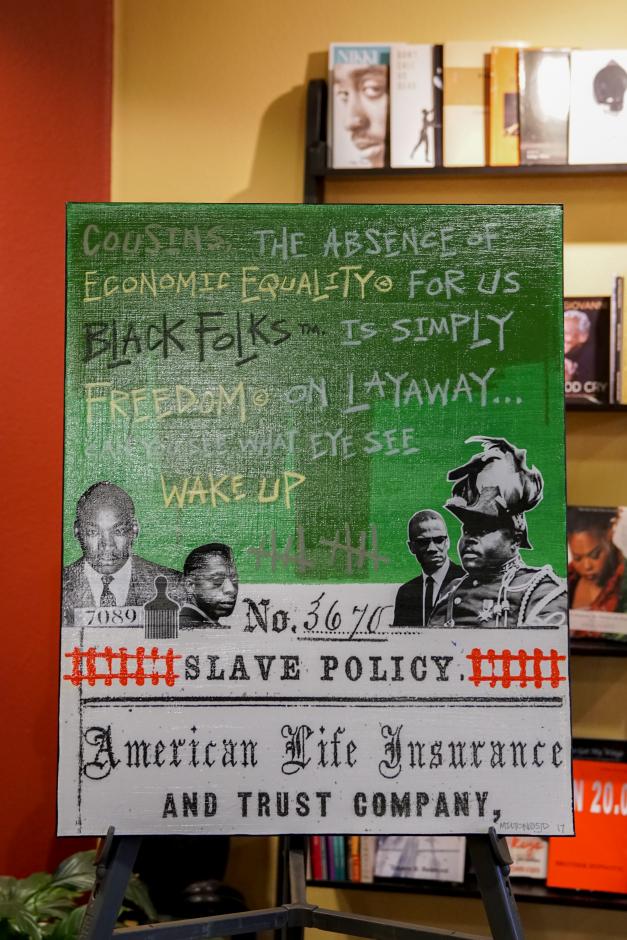 NIKKI
DON'T
CALL
US
DEAD
COUSINS, THE ABSENCE OF
ECONOMIC EQUALITY© FOR US
BLACK FOLKS™. IS SIMPLY
FREEDOM© ON LAYAWAY...
CAN YOU SEE WHAT EYE SEE
WAKE UP
7089
No. 3670
SLAVE POLICY.
American Life Insurance
AND TRUST COMPANY,
17
GIOVANNI
OD CRY
N 20.0